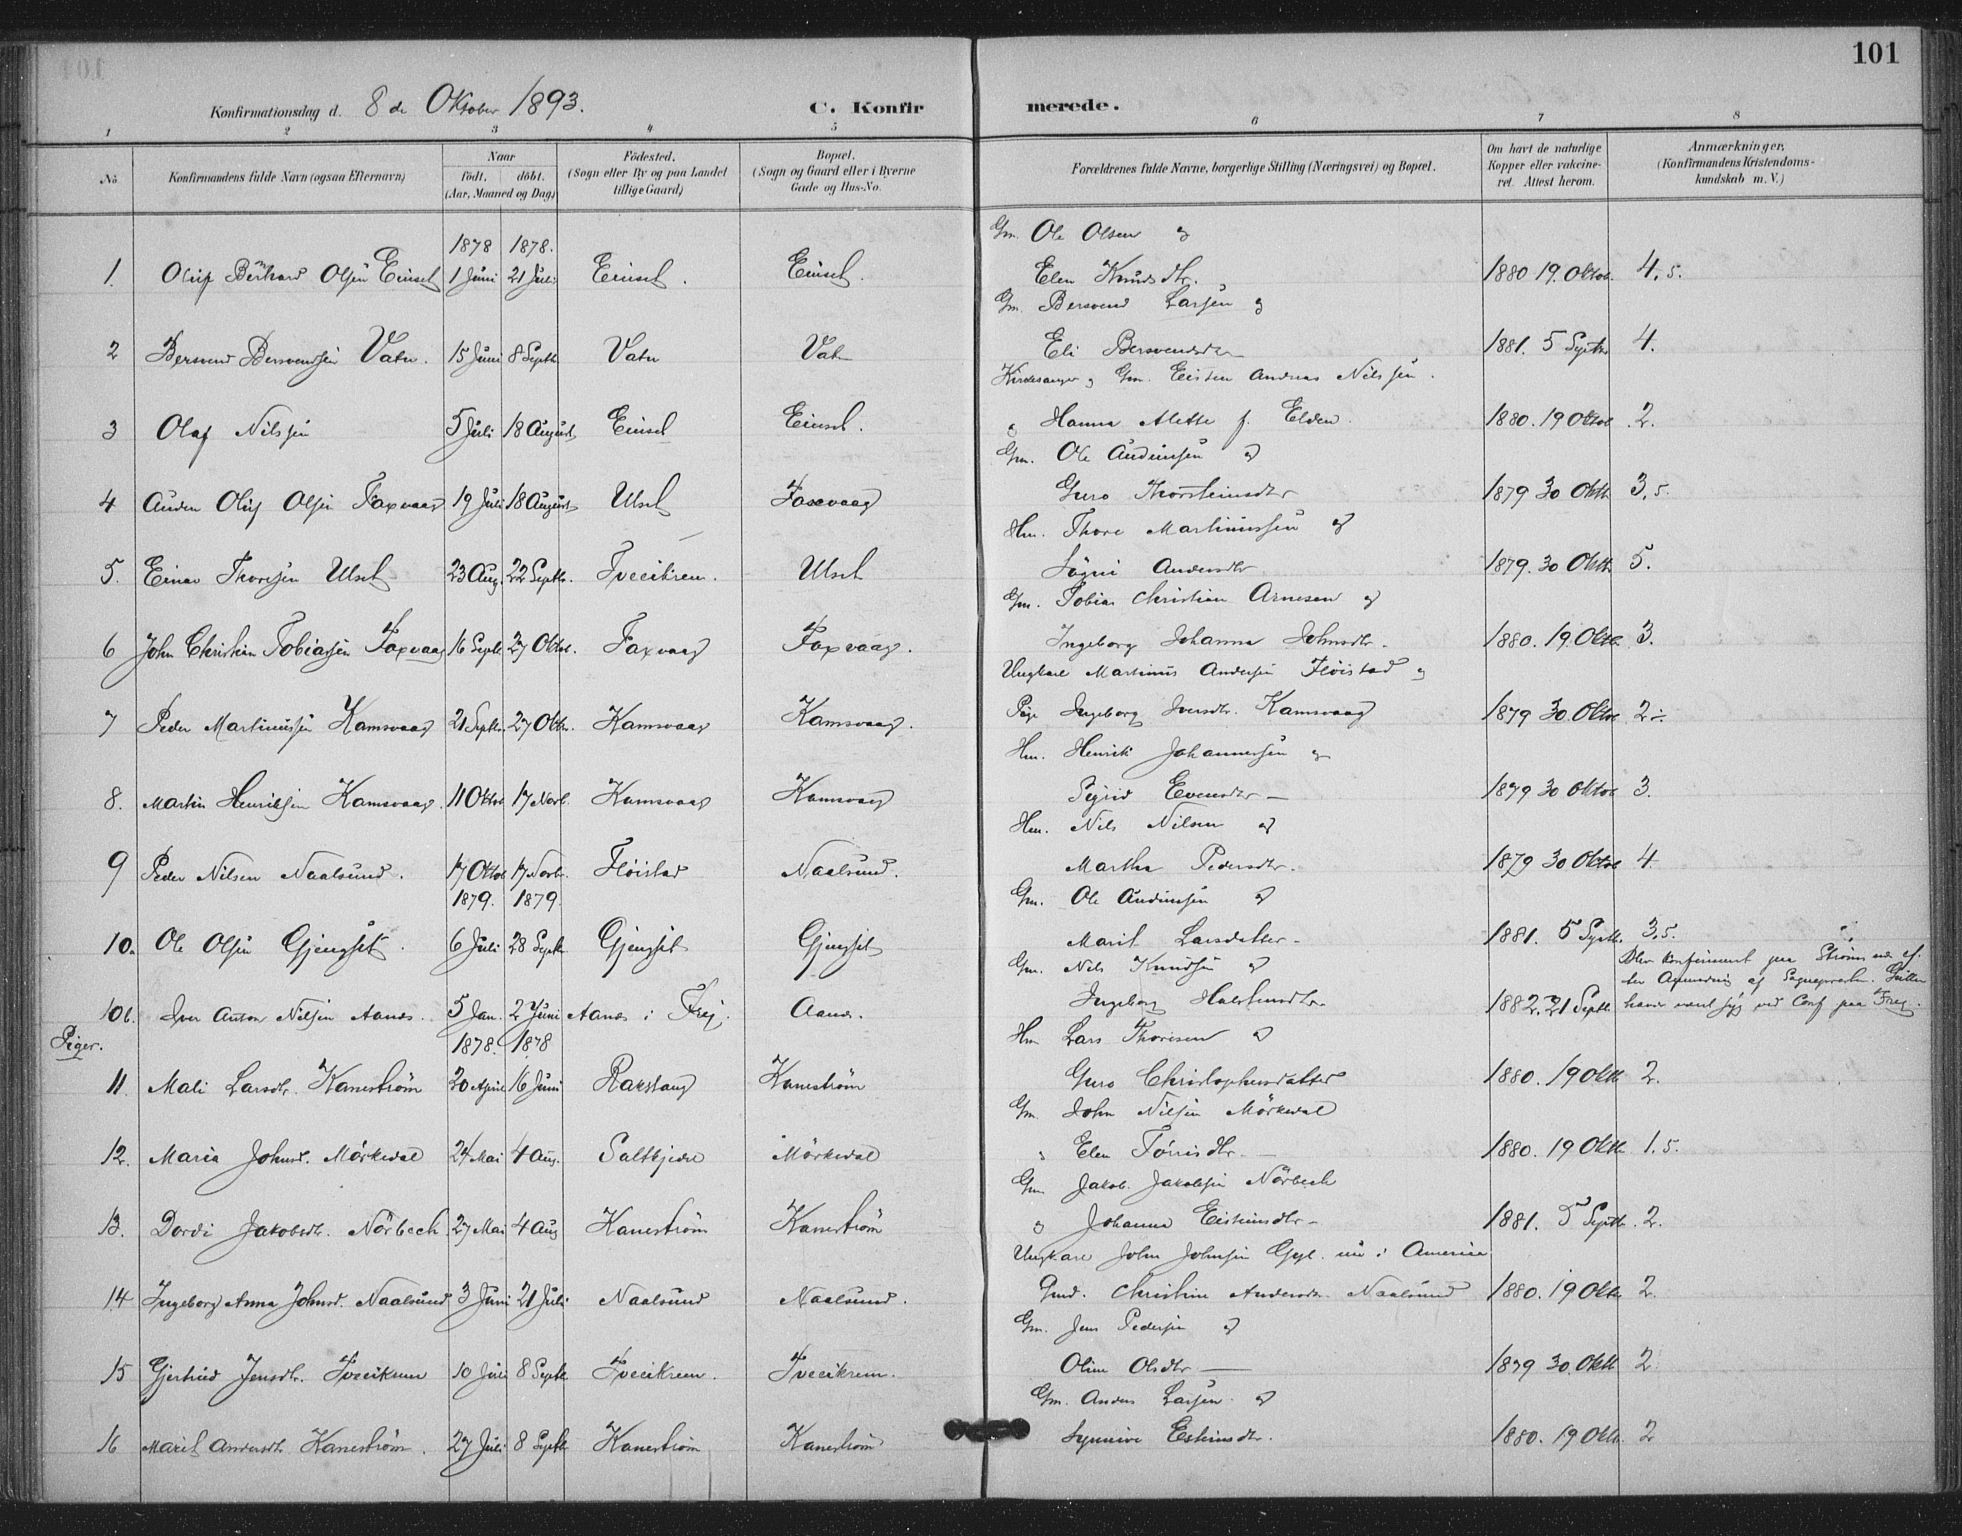 101
Konfirmationsdag d. 8 de Oktober 1893. C. Konfirmerede.
1 2 3 4 5 6 7 8
No. Konfirmandens fulde Navn (ogsaa Efternavn) Naar födt. döbt. (Aar, Maaned og Dag) Födested. (Sogn eller By og paa Landet tillige Gaard) Bopæl. (Sogn og Gaard eller i Byerne Gade og Hus-No. Forældrenes fulde Navne, borgerlige Stilling (Næringsvei) og Bopæl. Om havt de naturlige Kopper eller vakcineret. Attest herom. Anmærkninger, (Konfirmandens Kristendomskundskab m. V.)
1878 1878. Gm. Ole Olsen og
1. Oluf Bernhard Olsen Einset 1 Juni 21 Juli Einset. Einset. Elen Knudsdtr. 1880 19. Oktob. 4,5.
Gm. Bersvend Larsen og
2 Bersvend Bersvendsen Vatn. 15 Juni 8 Septb Vatn Vatn Eli Bersvendsdtr 1881. 5 Septbr 4.
Kirkesanger og Gm. Eisten Andreas Nilssen.
3 Olaf Nilssen 5 Juli 18 August Einset Einset. og Hanna Alette f. Elden. 1880. 19 Oktob 2.
Gm. Ole Audunsen og
4 Auden Oluf Olsen Faxvaag 19 Juli 18 August Ulset Faxvaag Guro Thorsteinsdtr 1879 30 Oktb. 3,5.
Hm. Thore Martinussen og
5. Einar Thoresen Ulset 23 Aug. 22 Septbr. Tveeikrem. Ulset Andersdtr 1879. 30 Oktb 5.
Gm. Tobias Christian Arnesen og
6 John Christian Tobiassen Faxvaag 16 Septb 27 Oktob. Faxvaag Faxvaag. Ingeborg Johanna Johnsdtr. 1880. 19. Oktb. 3.
Ungkarl Martinus Andersen Flöistad og
7 Peder Martinussen Kamsvaag 21 Septbr. 27 Oktb. Kamsvaag Kamsvaag. Pige Ingeborg Iversdtr. Kamsvaag 1879 30. Oktbr 2÷
Hm. Henrik Johannessen og
8. Martin Henriksen Kamsvaag. 11 Oktob 17 Novb. Kamsvaag Kamsvaag Sigrid Evensdtr 1879 30 Oktob 3.
Hm. Nils Nilsen og
9 Peder Nilsen Naalsund. 17 Oktob 17 Novb. Flöistad Naalsund. Martha Pedersdtr. 1879 30 Oktob 4.
1879. 1879. Gm. Ole Audunsen og
10a Ole Olsen Gjengset. 6 Juli 28 Septb. Gjengset Gjengset Marit Larsdatter 1881. 5 Septb. 3,5.
Gm. Nils Knudsen og Blev konfirmeret paa Strömmen ef.
ter Anmodning af Sognepresten.
10b. Iver Anton Nilsen Aanes. 5 Jan. 2 Juni Aanes i Frej. Aanes. Ingeborg 1882. 21 Septb. havde været syg ved Conf paa Frej.
Piger. 1878. 1878 Hm Lars Thoresen og
11. Mali Larsdtr. Kanestrøm 20 April 16 Juni Kanestrøm Guro Christophersdatter 1880. 19 Oktb 2.
Gm. John Nilsen Mörkedal
12. Maria Johnsd. Mörkedal 24 Mai 4 Aug. Saltkjelen Mörkedal og Elen Törrisdtr. 1880. 19 Oktb 1,5.
Gm Jakob Jakobsen Nörbech
13. Dordi Jakobsdtr. Nörbech 27 Mai 4 Aug Kanestrøm Kanestrøm og Johanna Eistensdtr 1881. 5 Septb. 2.
Ungkarl John Johnsen Gjyl. nu i Amerika
14 Ingeborg Anna Johnsd. Naalsund 3 Juni 21 Juli Naalsund Naalsund. Christine Andersdtr. Naalsund 1880. 19 Oktb 2.
Gm. Jens Pedersen og
15 Gjertrud Jensdtr. Tveeikrem 10 Juli 8 Septb. Tveeikrem. Tveeikrem. Oline Olsdtr 1879 30. Oktb 2.
Gm. Anders Larsen og
16 Marit Andersdtr Kanestrøm. 27 Juli 8 Septb Kanestrøm Kanestrøm Synnöve Estensdtr. 1880. 19 Oktb. 2